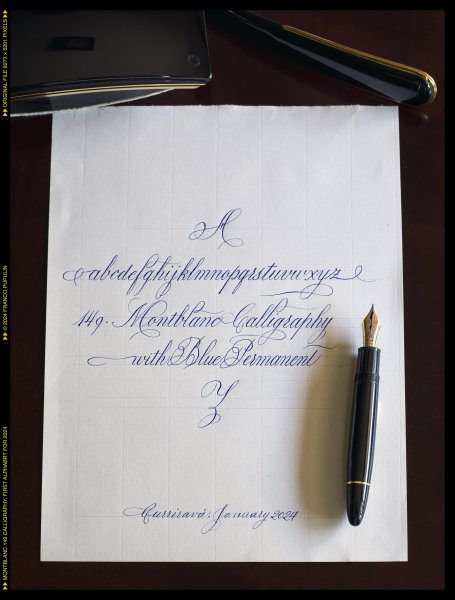 A
abcdefghijklmnopqrstuvwxyz
149. Montblanc Calligraphy
with Blue Permanent
Z
Curriravá, January 2024
▶▶ ORIGINAL FILE 6273 x 8201 PIXELS ▶▶
▶▶ © 2024 FRANCO PUPULIN
▶▶ MONTBLANC 149 CALLIGRAPHY, FIRST ALPHABET FOR 2024